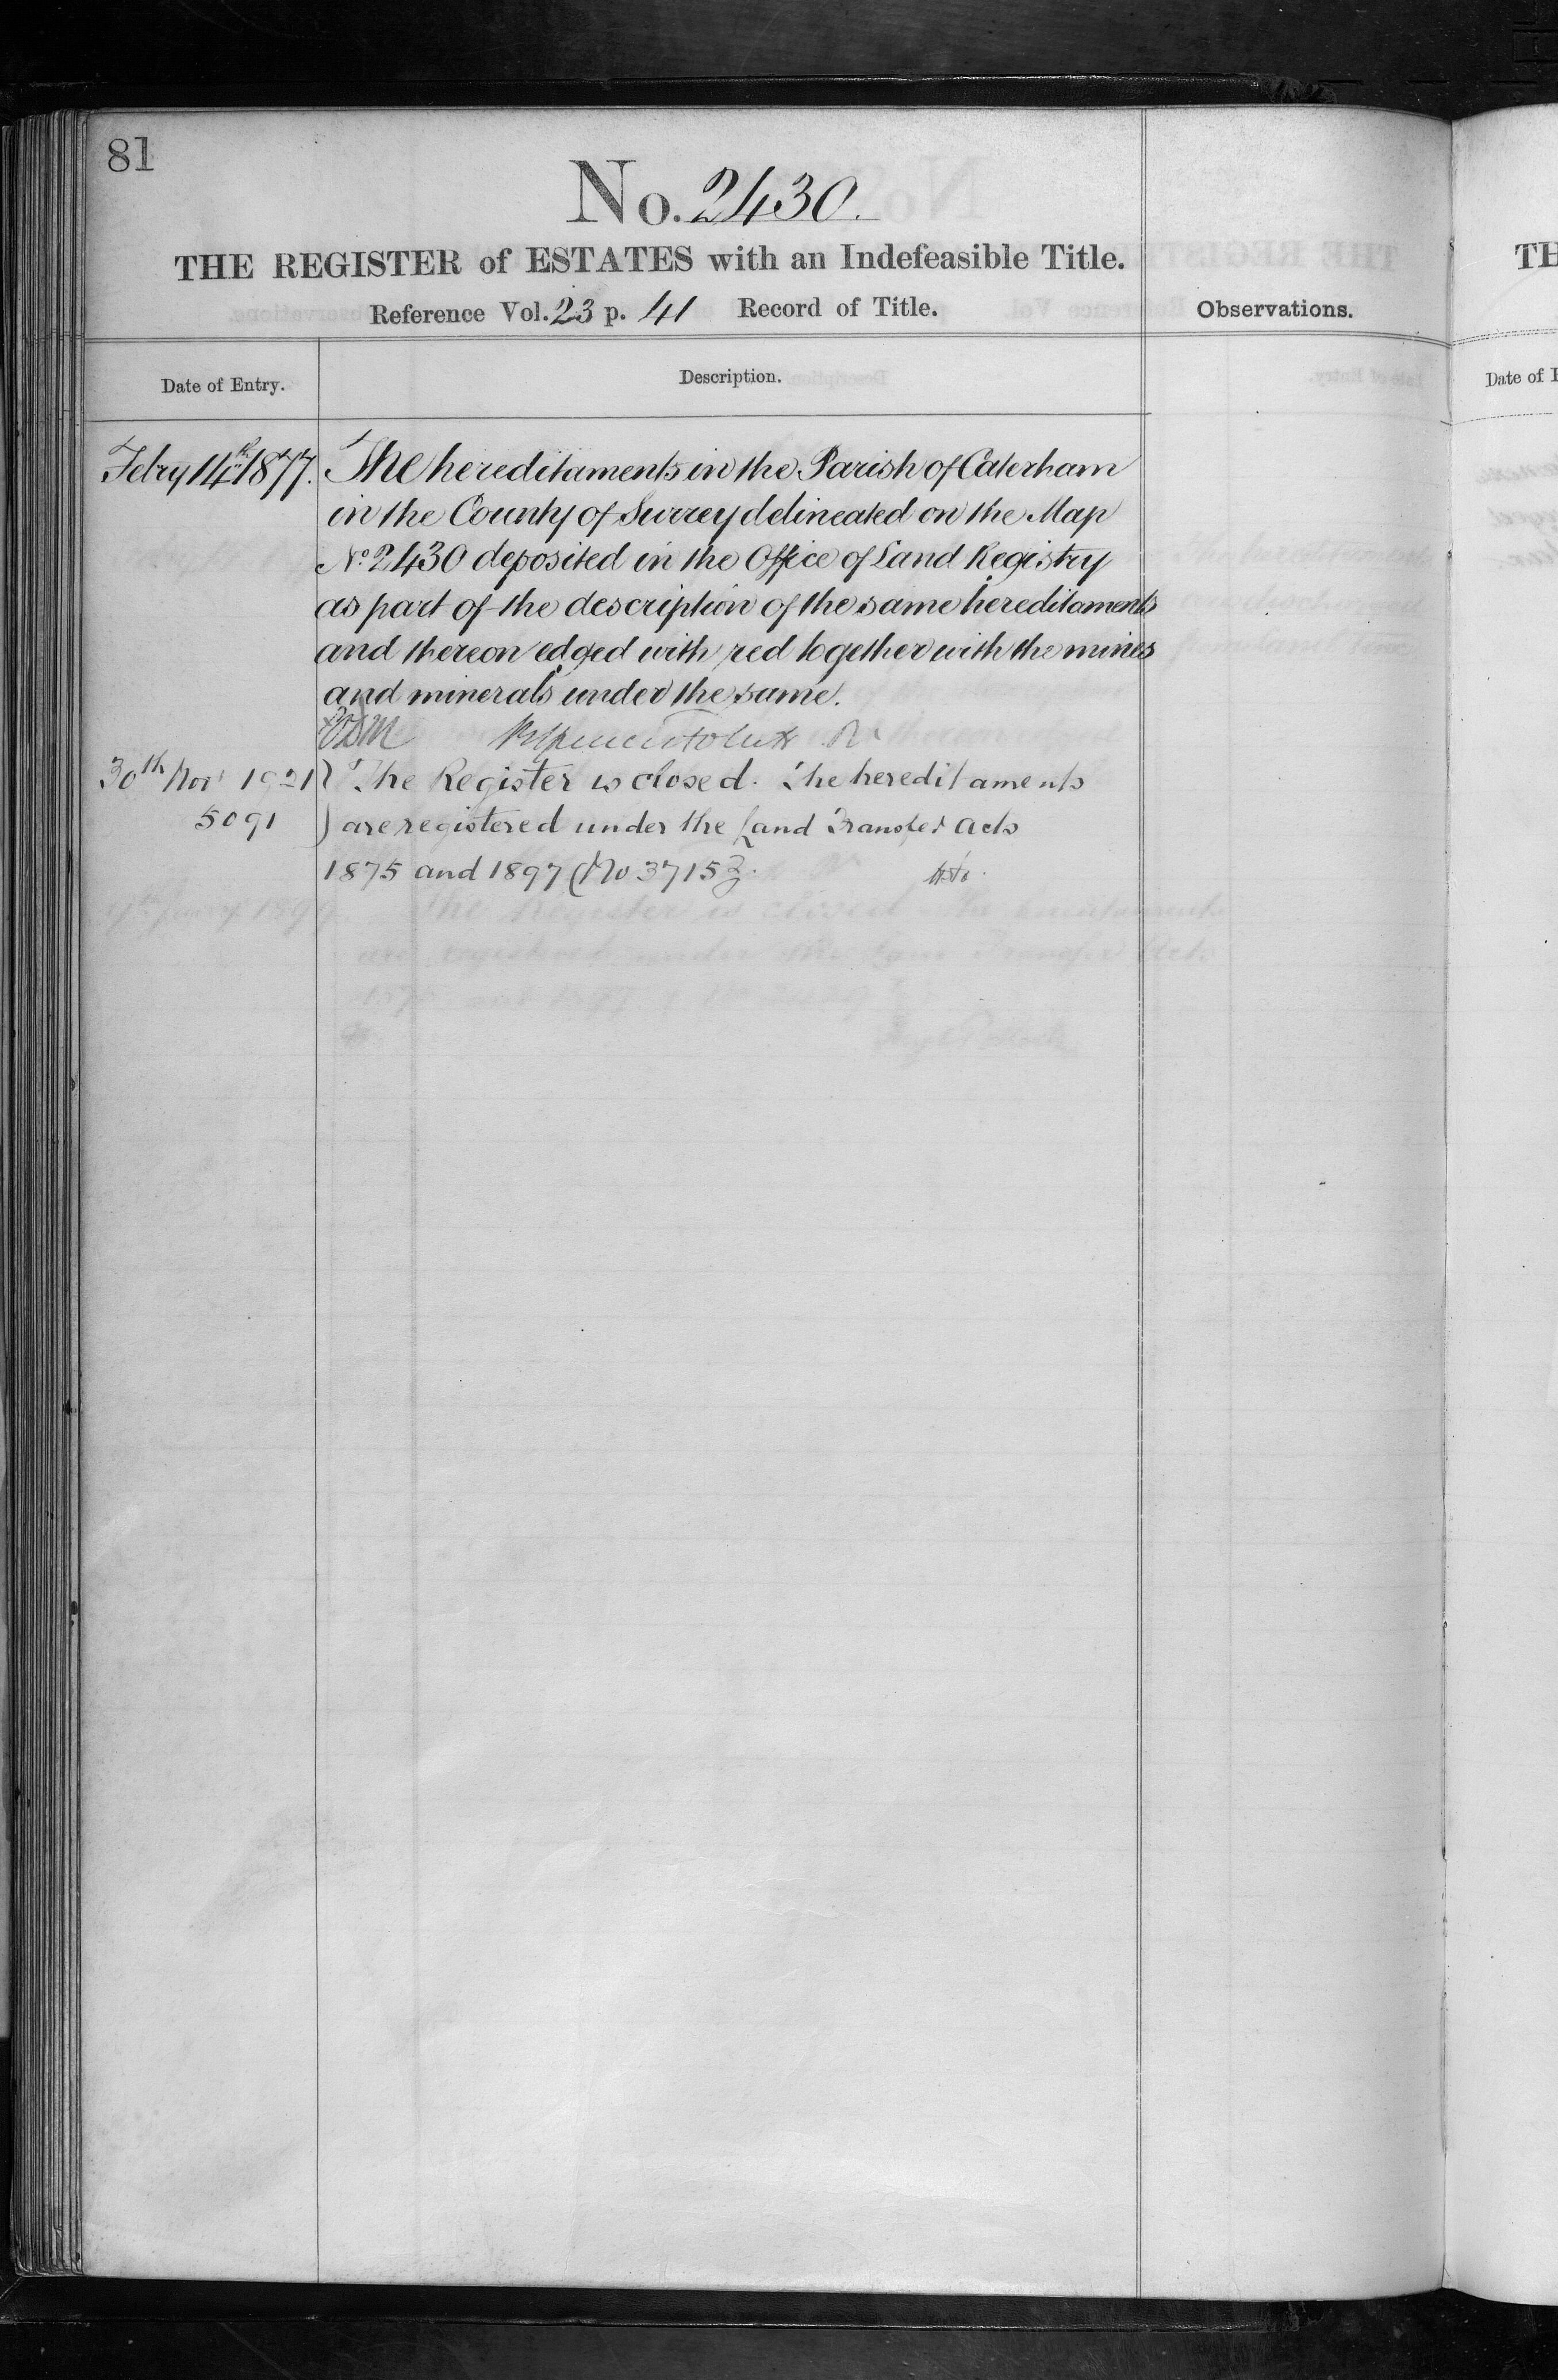 81
No. 2430.
THE REGISTER of ESTATES with an Indefeasible Title.
Reference Vol. 23 p. 41 Record of Title.
Observations.
Date of Entry.
Description.
Febry 14th 1877.
The hereditaments in the Parish of Caterham
in the County of Surrey delineated on the Map
No. 2430 deposited in the Office of Land Registry
as part of the description of the same hereditaments
and thereon edged with red together with the mines
and minerals under the same.
30th Nov 1921
5091
The Register is closed. The hereditaments
are registered under the Land Transfer Acts
1875 and 1897 (No 3715
TH
Date of